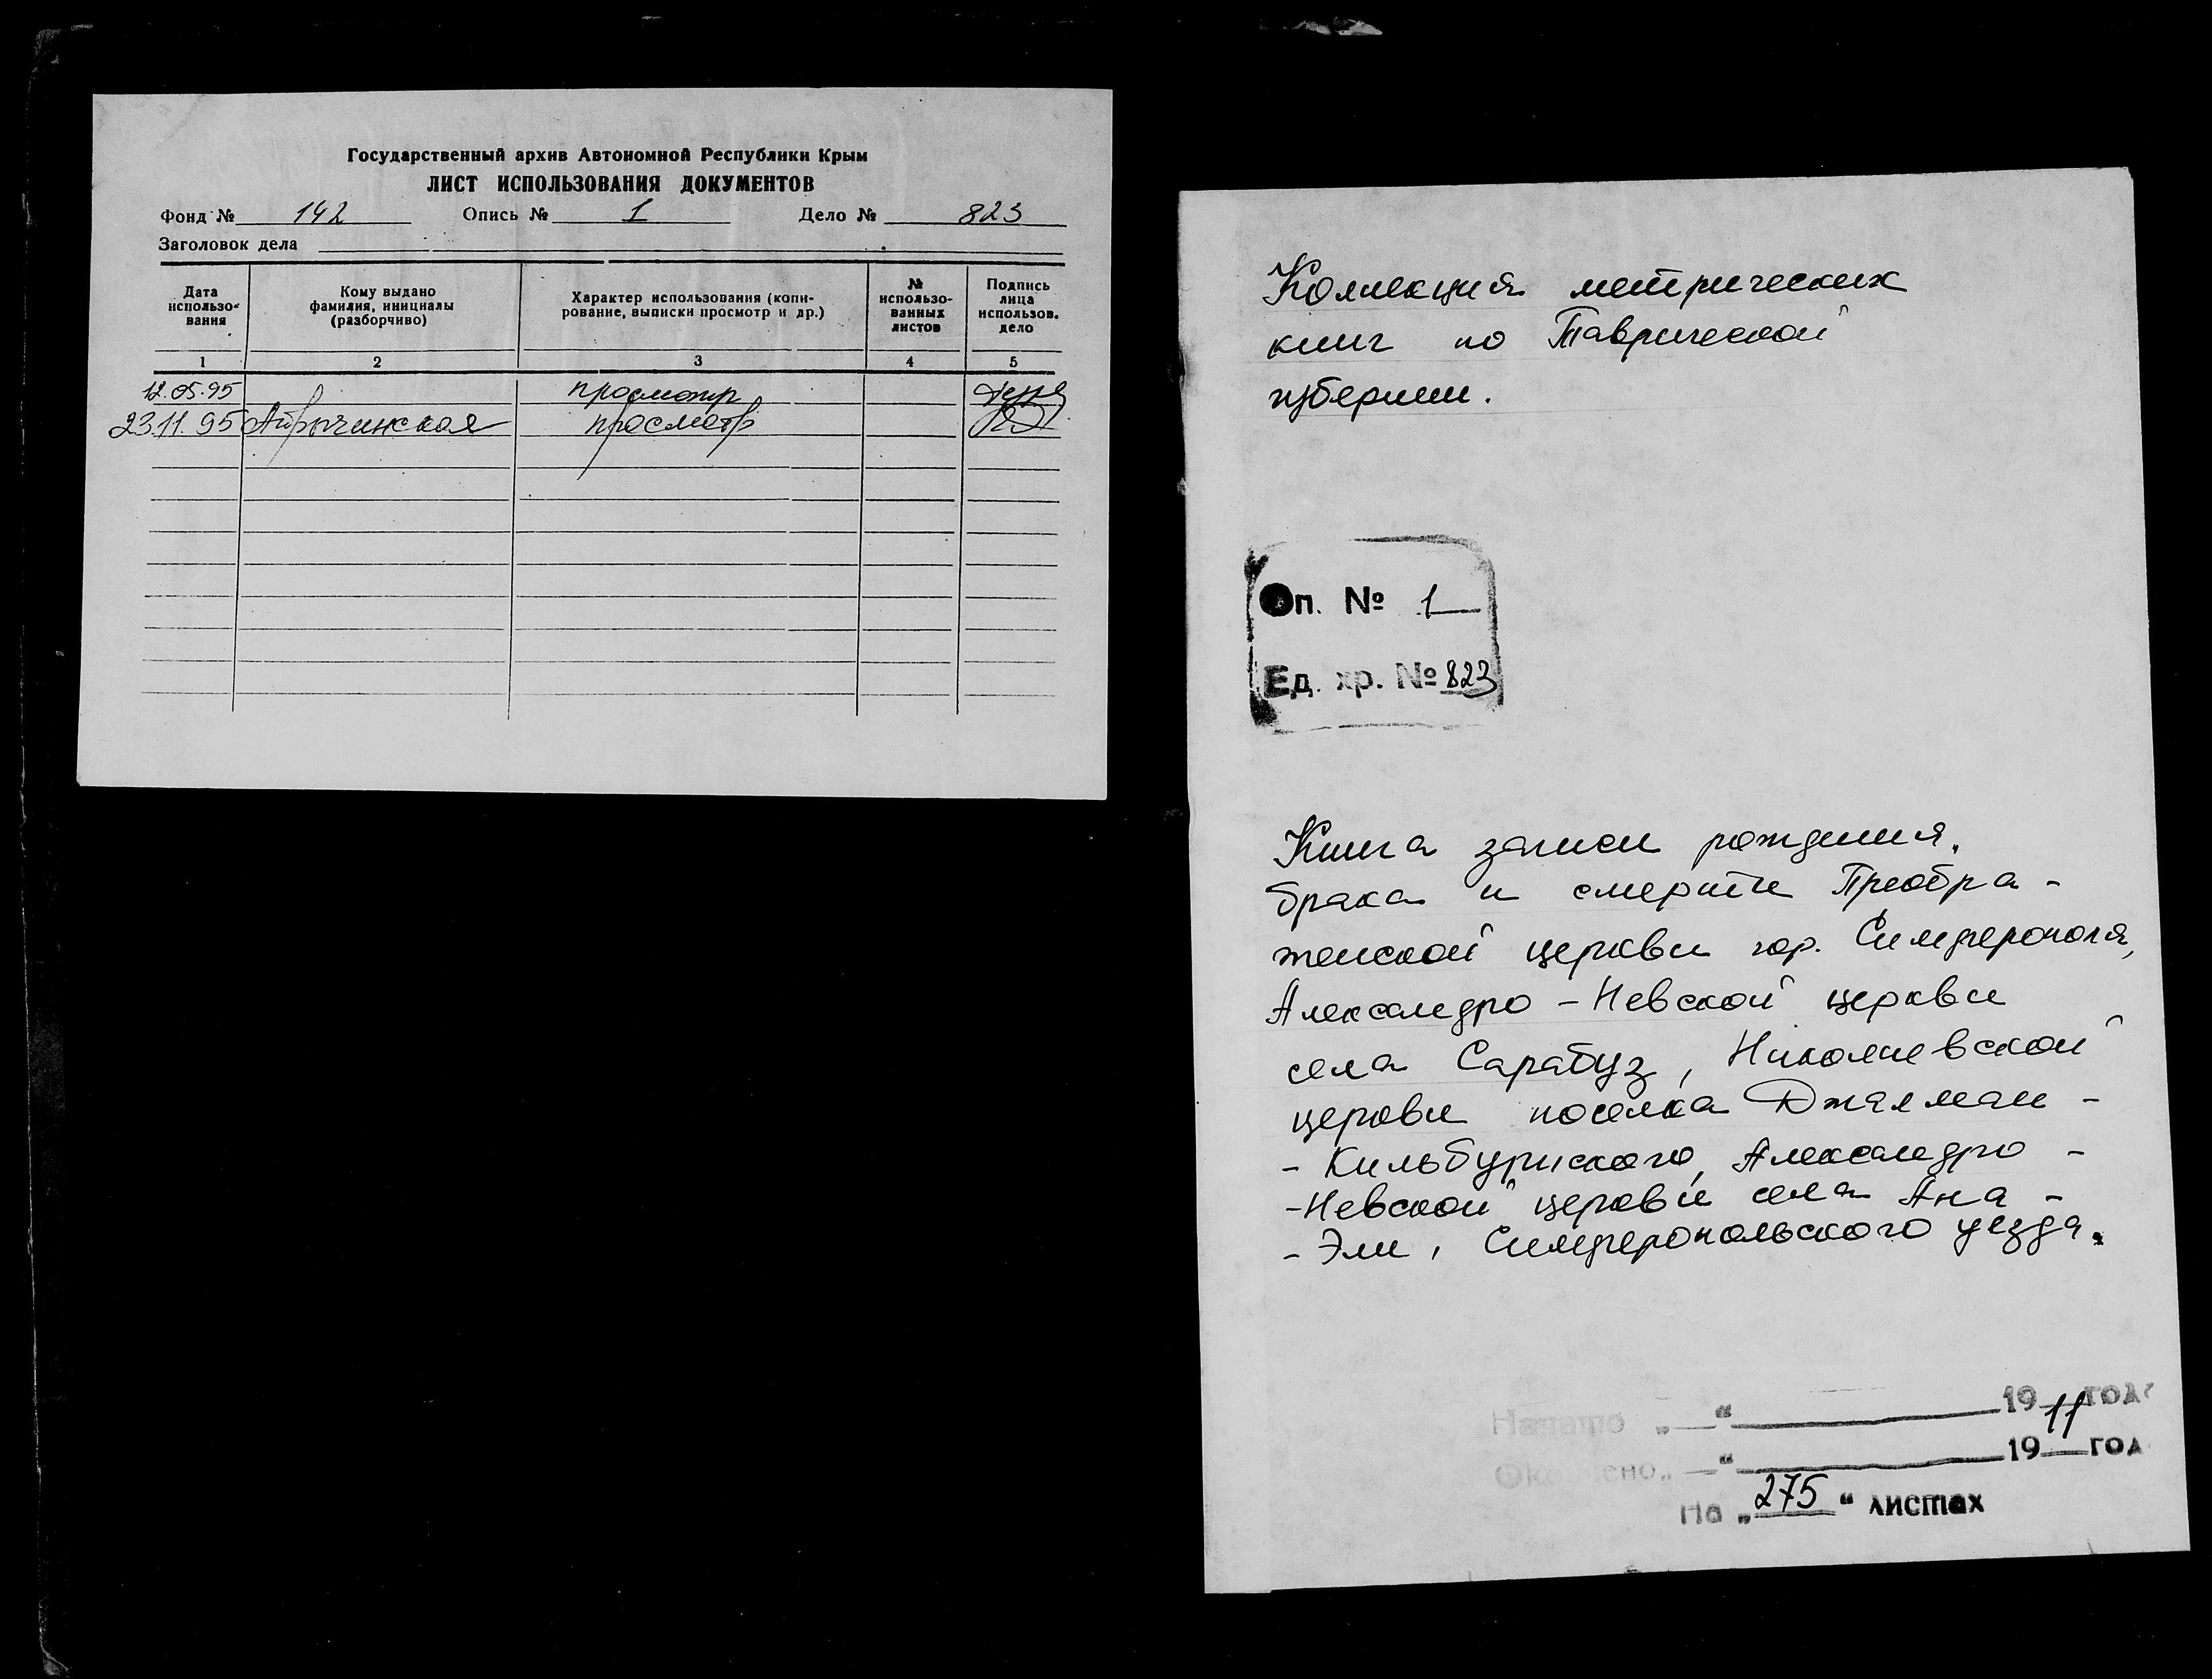 Государственный архив Автономной Республики Крым
ЛИСТ ИСПОЛЬЗОВАНИЯ ДОКУМЕНТОВ
Фонд № 142 Опись № 1 Дело № 823
Заголовок дела
Дата использо-вания
Кому выдано фамилия, инициалы (разборчиво)
Характер использования (копи-рование, выписки просмотр и др.)
№ использо-ванных листов
Подпись лица использов. дело
1 2 3 4 5
12.05.95 просмотр
23.11.95 просмотр
Коллекция метрических
книг по Таврической
губернии.
Оп. № 1
Ед. хр. № 823
Книга записи рождения,
брака и смерти Преобра-
женской церкви гор. Симферополя,
Александро-Невской церкви
села Сарабуз, Николаевской
церкви поселка Джалман-
-Кильбурнского, Александро-
-Невской церкви села Ана-
-Эли, Симферопольского уезда.
Начато „ “ 19 11 год
Окончено „ “ 19 год
На „ 275 “ листах